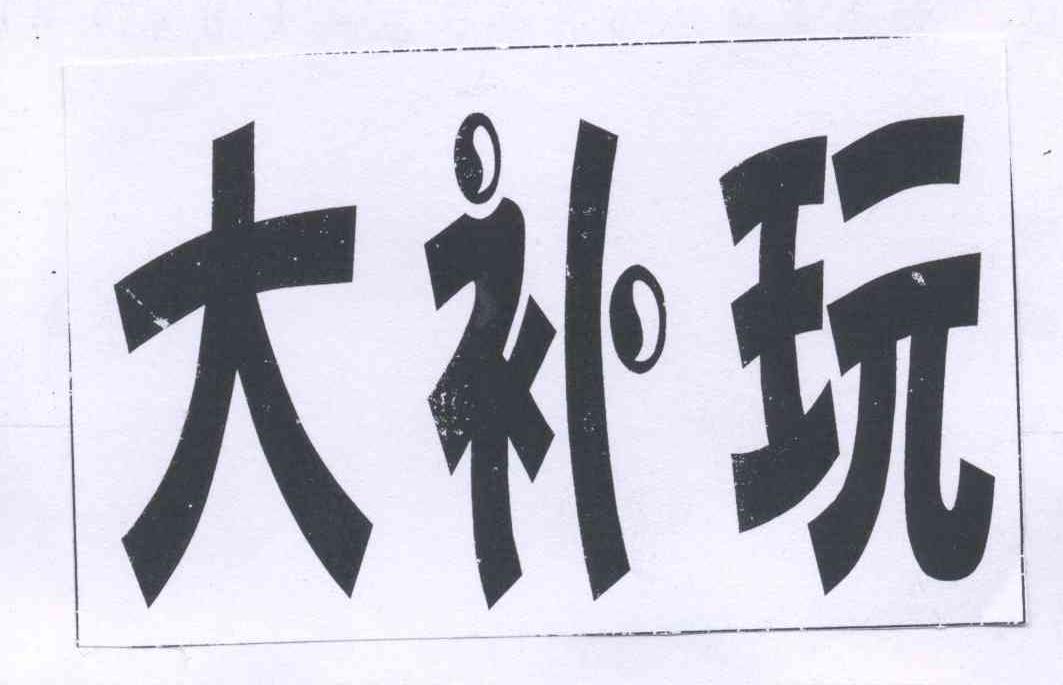 大补玩